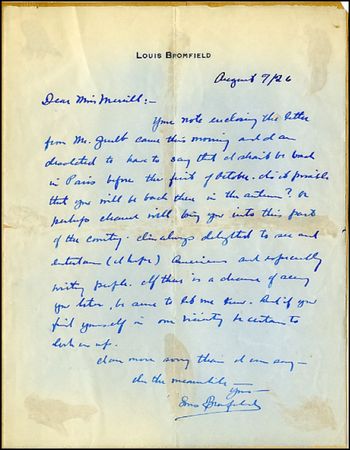 LOUIS BROMFIELD
August 7/26
Dear Miss Merrill:-
Your note enclosing the letter
from Mr. came this morning and I am
desolated to have to say that I shan't be back
in Paris before the first of October. Is it possible
that you will be back there in the autumn? Or
perhaps chance will bring you into this part
of the country. I'm always delighted to see and
entertain (I hope) Americans and especially
writing people. If there is a chance of seeing
you later, be sure to let me know. And if you
find yourself in our vicinity be certain to
look us up.
I am more sorry than I can say—
In the meanwhile—
Yours—
Louis Bromfield